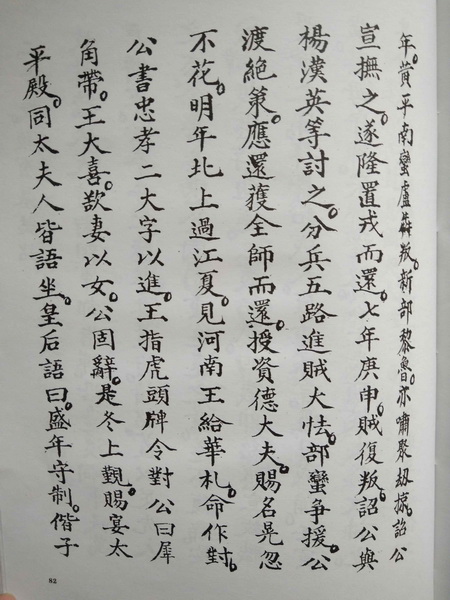 年。黄平南蠻盧犇叛。新部黎魯。亦嘯聚劫掠。詔公
宣撫之。遂隆置戎而還。七年庚申。賊復叛。詔公與
楊漢英等討之。分兵五路進。賊大怯。部蠻争援。公
渡絶策應。還獲全師而還。授資德大夫。賜名晃忽
不花。明年北上過江夏。見河南王給華札。命作對。
公書忠孝二大字以進。王指虎頭牌令對公曰犀
角帶。王大喜。欲妻以女。公固辭。是冬上覲。賜宴太
平殿。同太夫人皆語坐。皇后語曰。盛年守制。偕子
82